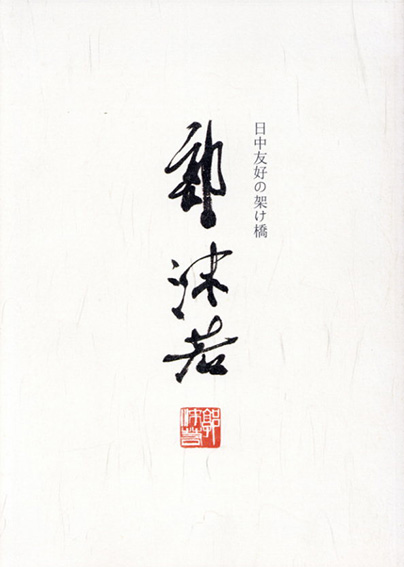 日中友好の架け橋
郭沫若
郭
沫若